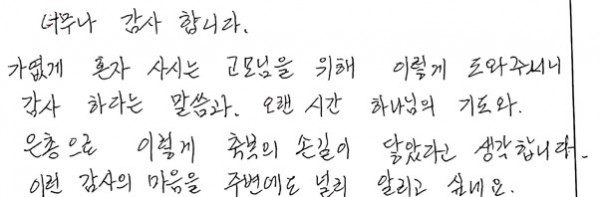 너무나 감사 합니다.
가엾게 혼자 사시는 고모님을 위해 이렇게 도와주시니
감사 하다는 말씀과. 오랜 시간 하나님의 기도와.
은총으로 이렇게 축복의 손길이 닿았다고 생각합니다.
이런 감사의 마음을 주변에도 널리 알리고 싶네요.